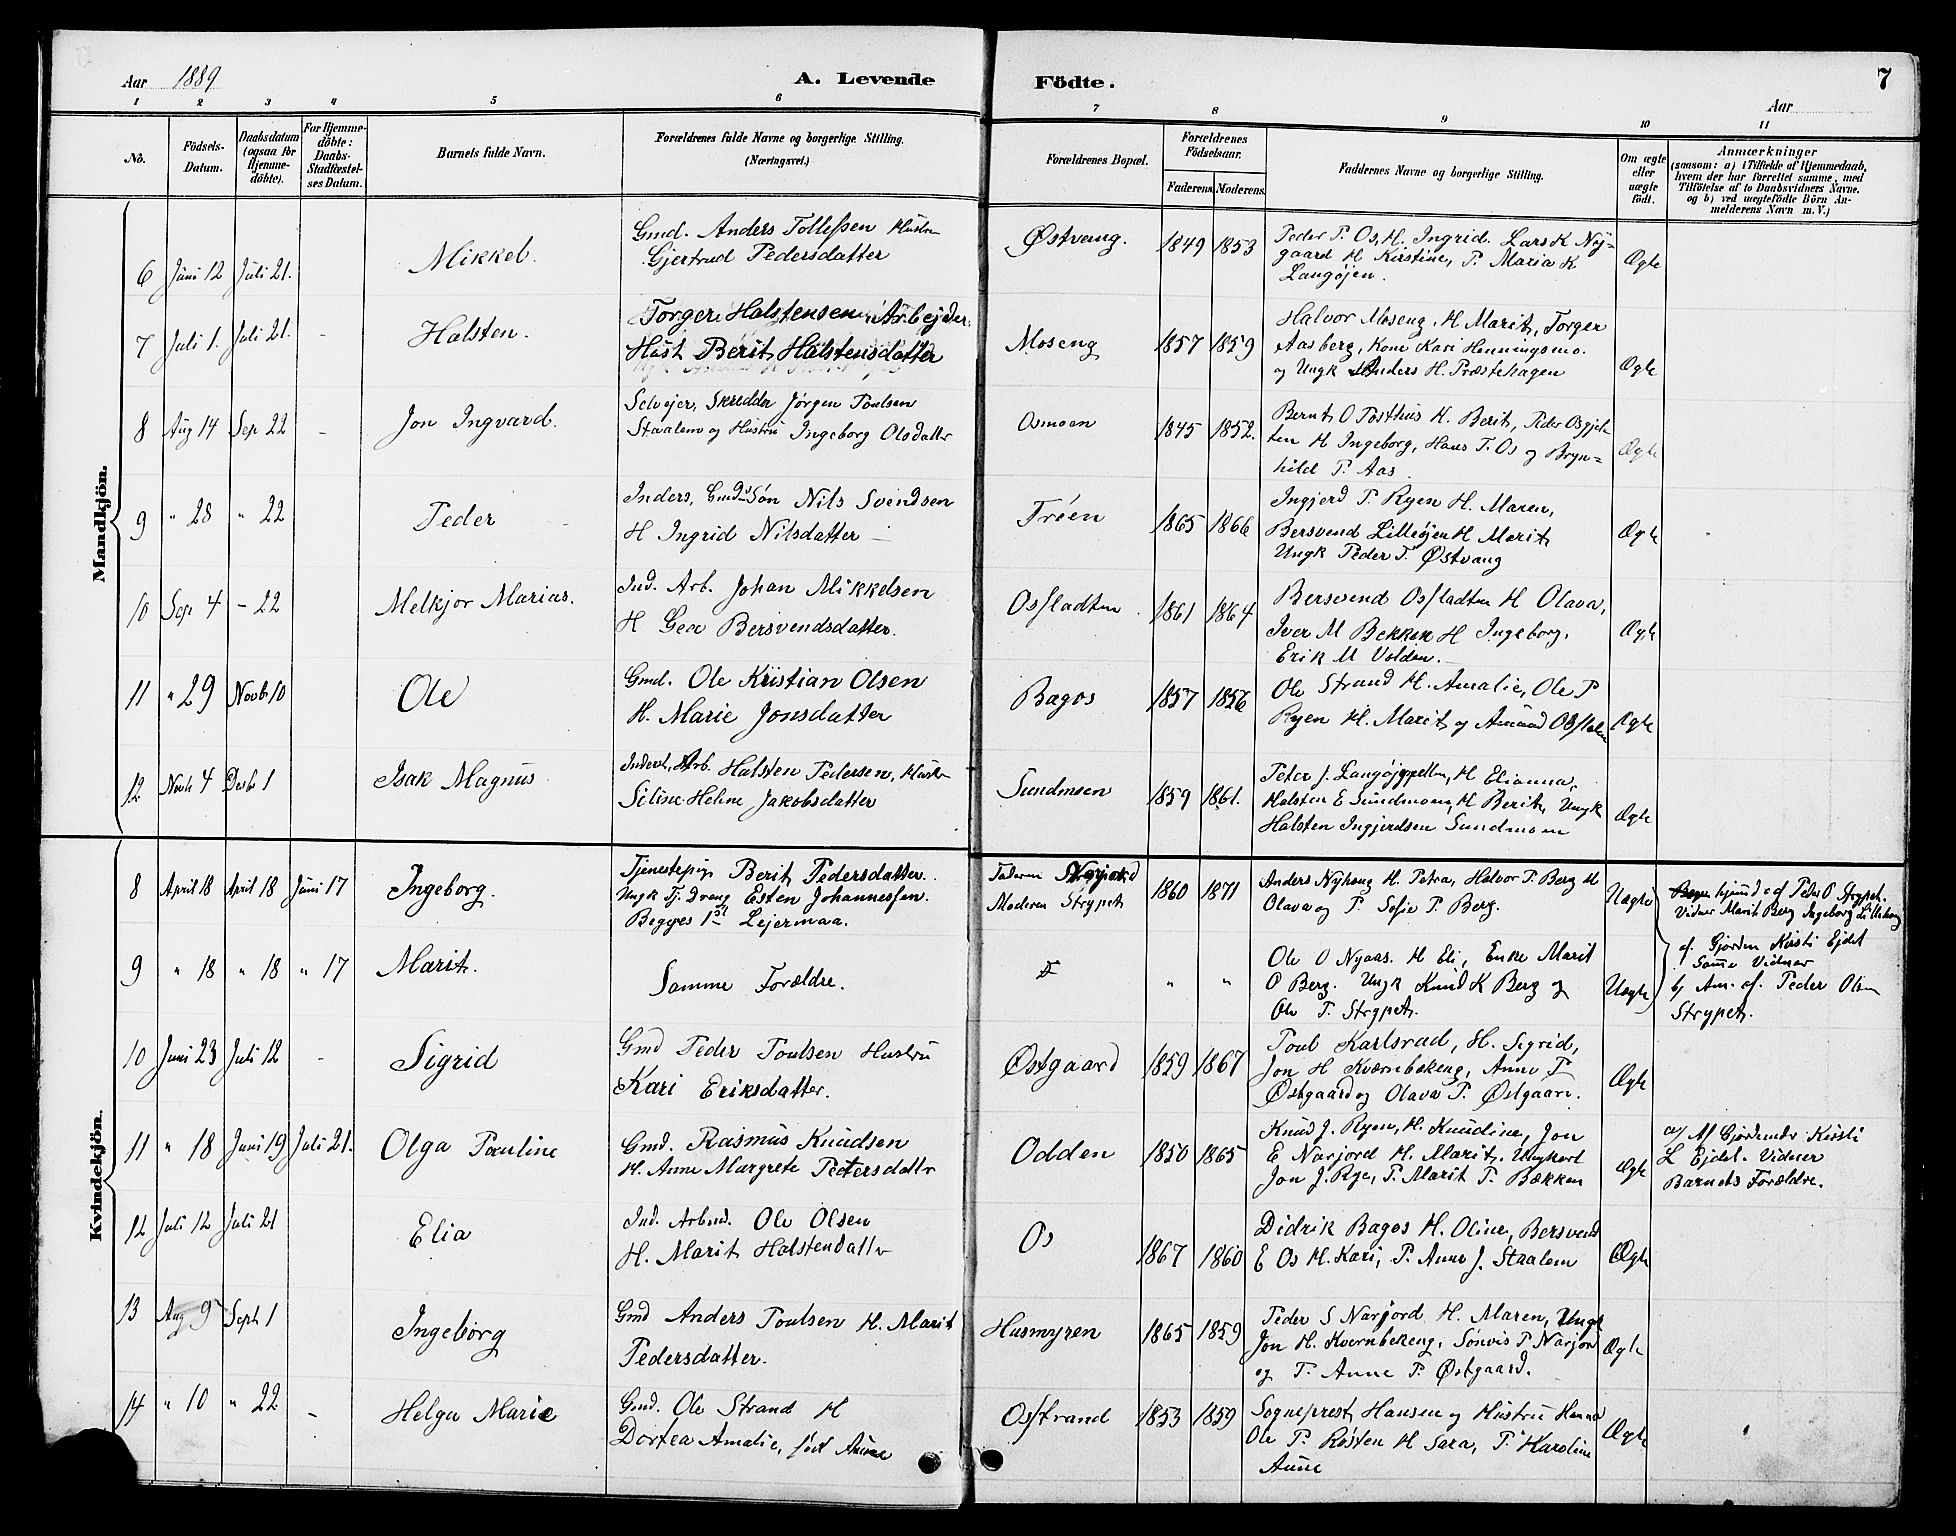 Aar 1889
A. Levende
Födte.
7
Aar
1 2 3 4 5 6 7 8 9 10 11
No.
Födsels-Datum.
Daabsdatum (ogsaa for Hjemme-döbte).
For Hjemme-döbte: Daabs-Stadfæstel-ses Datum.
Barnets fulde Navn.
Forældrenes fulde Navne og borgerlige Stilling. (Næringsvei.)
Forældrenes Bopæl.
Forældrenes Födselsaar.
Faderens. Moderens.
Faddernes Navne og borgerlige Stilling.
Om ægte eller uægte födt.
Anmærkninger
(saasom: a) i Tilfælde af Hjemmedaab, hvem der har forrettet samme, med Tilföielse af to Daabsvidners Navne. og b) ved uægtefödte Börn An-melderens Navn m. V.)
Mandkjön.
6 Juni 12 Juli 21. Mikkel. Gmd. Anders Tollefsen Hustru
Gjertrud Pedersdatter
Østvang. 1849 1853 Peder P. Os, H. Ingrid. Lars K Ny-
gaard H Kirstine, P. Maria K
Langøjen. Ægte
7 Juli 1. Juli 21. - Halsten. Torger Halstensen Arbejder.
Hust Berit Halstensdatter
Moseng 1857 1859 Halvor Moseng. H Marit, Torger
Aasberg, Kone Kari Henningsmo.
og Ungk Anders H. Præstehagen Ægte
8 Aug 14 Sep 22 - Jon Ingvard. Selvejer, Skredder Jørgen Poulsen
Staalem og Hustru Ingeborg Olsdatter
Osmoen 1845 1852. Bernt O Posthus H. Berit, Peder Osgjel-
ten H Ingeborg, Hans T. Os og Bryn=
hild P. Aas Ægte
9 " 28 " 22 Peder Inders, Gmds Søn Nils Svendsen
H Ingrid Nilsdatter -
Trøen 1865 1866 Ingjerd P. Ryen H. Maren,
Bersvend Lilleøjen H Marit
Ungk Peder T. Østvang Ægte
10 Sep 4 - 22 Melkjor Marias. Ind. Arb. Johan Mikkelsen
H Gea Bersvendsdatter.
Osfladten 1861 1864 Bersvend Osfladten H Olava,
Iver M Bekken H Ingeborg,
Erik M Volden. Ægte
11 " 29 Novb 10 Ole Gmd. Ole Kristian Olsen
H. Marie Jonsdatter
Bagos 1857 1856 Ole Strand H. Amalie, Ole P
Ryen H. Marit og Amund Ægte
12 Novb 4 Decb 1 Isak Magnus Inderst, Arb. Halsten Pedersen, Hustru
Seline Heline Jakobsdatter
Sundmoen 1859 1861. Peter J. H Elianna,
Halsten E Sundmoen, H Berit, Ungk
Halsten Ingjerdsen Sundmoen Ægte
Kvindekjön.
8 April 18 April 18 Juni 17 Ingeborg. Tjenestepige Berit Pedersdatter.
Ungk Tj. dreng Esten Johannesen.
Begges 1st Lejermaa.
Faderen
Moderen Strypet 1860 1871 Anders Nyhaug H. Petra, Halvor P. Berg H
Olava og P. Sofie P. Berg. Uægte hjemd af Peder O Strypet.
Vidner Marit Berg Ingeborg Lillehaug
9 " 18 " 18 " 17 Marit. Samme Forældre. " " Ole O Nyaas. H Eli, Enke Marit
O Berg. Ungk Knud K Berg og
Ole P. Strypet. Uægte af Gjordm Kirsti Ejdet
Samme Vidner
b/ Am. af. Peder Olsen
Strypet.
10 Juni 23 Juli 12 - Sigrid Gmd Peder Poulsen Hustru
Kari Eriksdatter.
Østgaard 1859 1867 Poul Karlsrud, H. Sigrid,
Jon H Kværnbekeng, Anne P
Østgaard og Olava P. Østgaard. Ægte
11 " 18 Juni 19 Juli 21. Olga Pauline Gmd. Rasmus Knudsen
H. Anne Margrete Pedersdattr
Odden 1850 1865 Knud J. Ryen, H. Knudine, Jon
E Narjord H. Marit, Ungkarl
Jon J. Rye, P. Marit P. Bækken Ægte a/ Af Gjordemdr Kirsti
L Ejdet. Vidner
Barnets Forældre.
12 Juli 12 Juli 21 Elia Ind. Arbmd. Ole Olsen
H. Marit Halstendattr
Os 1867 1860 Didrik Bagos H. Oline, Bersvend
E Os H. Kari, P. Anne J. Staalem Ægte
13 Aug 9 Sept 1 Ingeborg Gmd Anders Poulsen H. Marit
Pedersdatter.
Husmyren 1865 1859 Peder S Narjord H. Maren, Ungk
Jon H. Kvernbekeng. Sønvis P Narjord
og P. Anne P. Østgaard. Ægte
14 " 10 " 22 - Helga Marie Gmd. Ole Strand H
Dortea Amalie, født Aune
Osstrand 1853 1859 Sogneprest Hansen og Hustru Hanna
Ole P. Røsten H Sara, P. Karoline
Aune Ægte